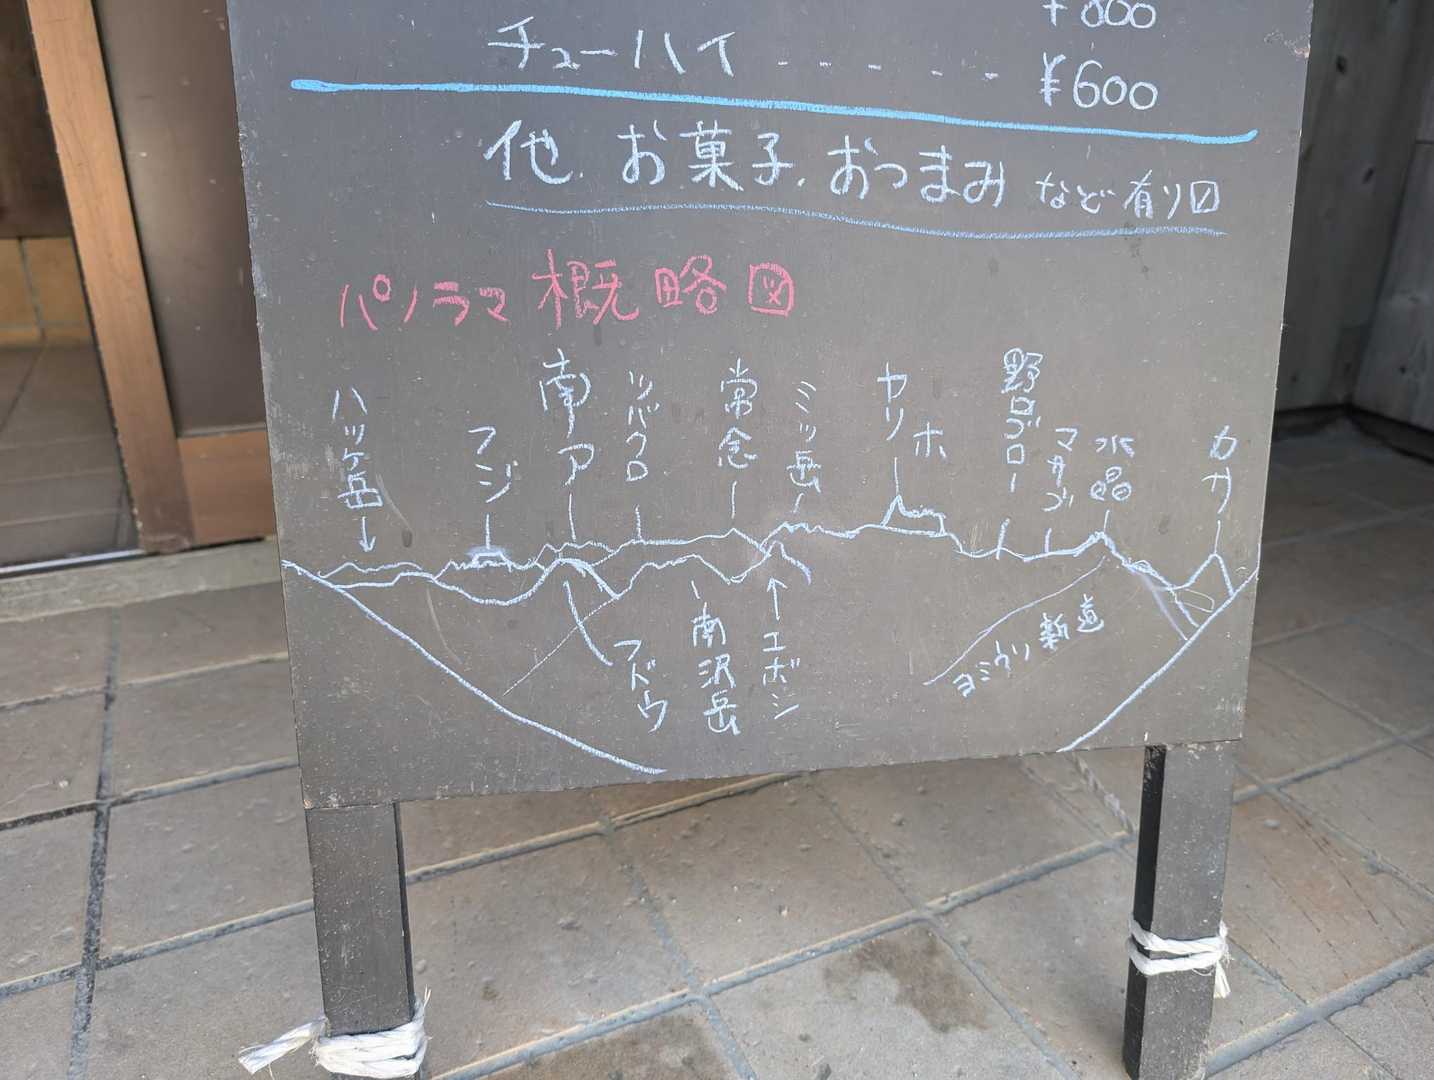 ¥800
チューハイ ------ ¥600
他、お菓子、おつまみ など有り〼
パノラマ 概略図
ハッケ岳
フジ
南ア
ツバクロ
常念
ミツ岳
ヤリ
ホ
野口ゴロー
マサゴ
水晶
カサ
フドウ
南沢岳
エボシ
ヨミウリ新道